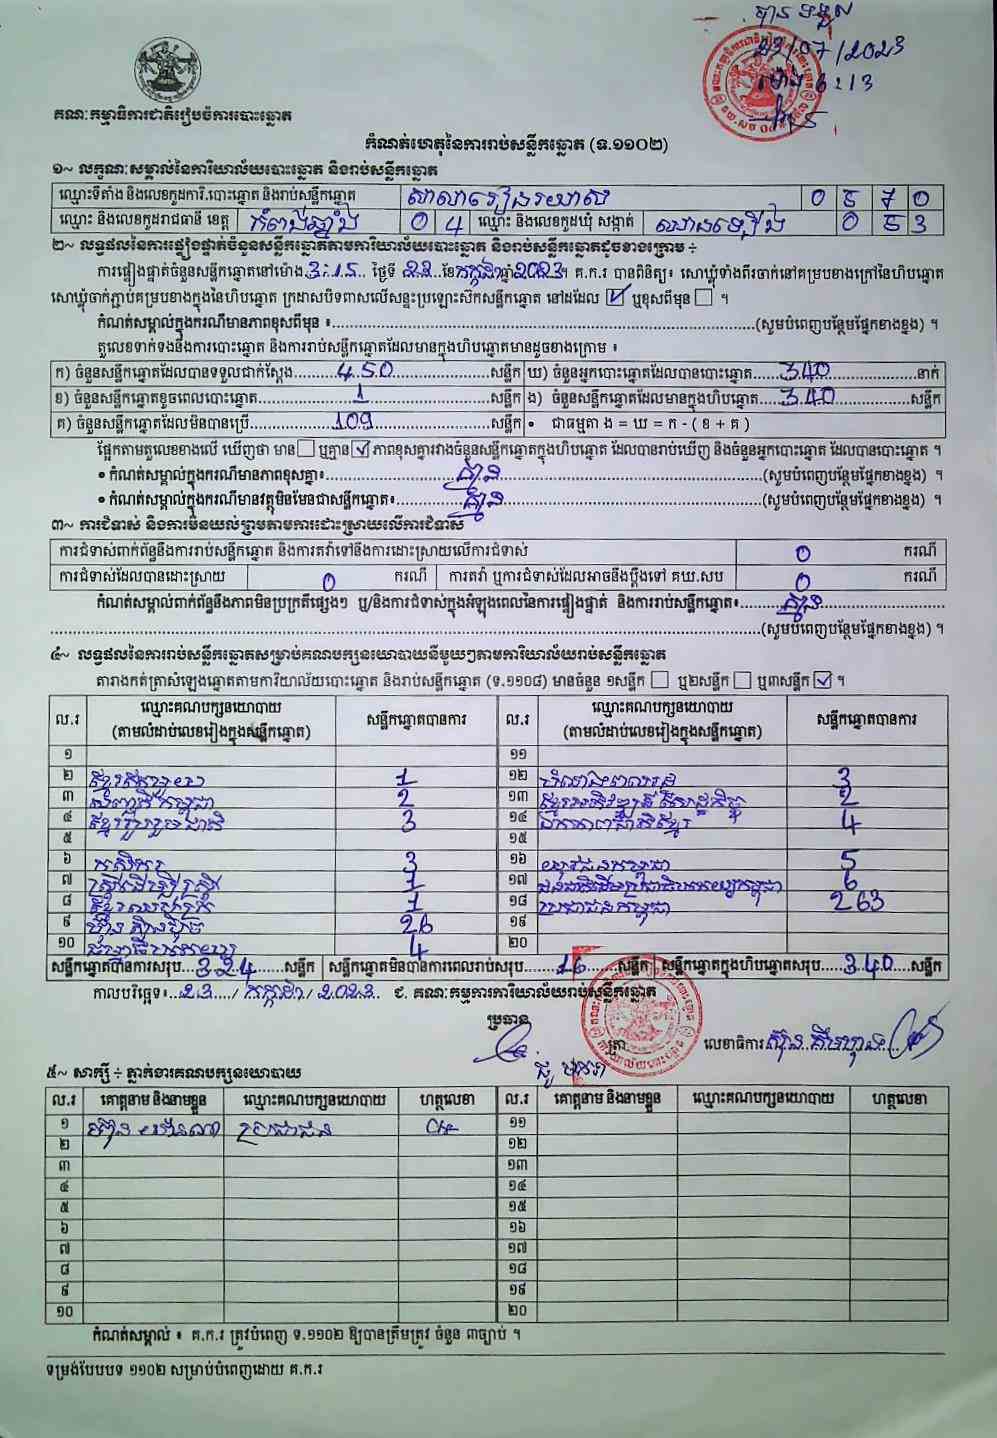 បានទទួល
23/07/2023
ម៉ោង 6:13
គណៈកម្មាធិការជាតិរៀបចំការបោះឆ្នោត
កំណត់ហេតុនៃការរាប់សន្លឹកឆ្នោត (ទ.១១០២)
១~ លក្ខណៈសម្គាល់នៃការិយាល័យបោះឆ្នោត និងរាប់សន្លឹកឆ្នោត
ឈ្មោះទីតាំង និងលេខកូដការិ.បោះឆ្នោត និងរាប់សន្លឹកឆ្នោត សាលារៀន 0 5 7 0
ឈ្មោះ និងលេខកូដរាជធានី ខេត្ត កំពង់ឆ្នាំង 0 4 ឈ្មោះ និងលេខកូដឃុំ សង្កាត់ 0 5 3
២~ លទ្ធផលនៃការផ្ទៀងផ្ទាត់ចំនួនសន្លឹកឆ្នោតតាមការិយាល័យបោះឆ្នោត និងរាប់សន្លឹកឆ្នោតដូចខាងក្រោម ÷
ការផ្ទៀងផ្ទាត់ចំនួនសន្លឹកឆ្នោតនៅម៉ោង 3:15 ថ្ងៃទី 23 ខែ កក្កដា ឆ្នាំ 2023 ។ គ.ក.រ បានពិនិត្យ៖ សោឃ្លុំទាំងពីរចាក់នៅគម្របខាងក្រៅនៃហិបឆ្នោត
សោឃ្លុំចាក់ភ្ជាប់គម្របខាងក្នុងនៃហិបឆ្នោត ក្រដាសបិទពាសលើសន្ទះប្រឡោះស៊កសន្លឹកឆ្នោត នៅដដែល ☑ ឬខុសពីមុន ☐ ។
កំណត់សម្គាល់ក្នុងករណីមានភាពខុសពីមុន ៖...(សូមបំពេញបន្ថែមផ្នែកខាងខ្នង) ។
តួលេខទាក់ទងនឹងការបោះឆ្នោត និងការរាប់សន្លឹកឆ្នោតដែលមានក្នុងហិបឆ្នោតមានដូចខាងក្រោម ៖
ក) ចំនួនសន្លឹកឆ្នោតដែលបានទទួលជាក់ស្តែង... 450 ...សន្លឹក ឃ) ចំនួនអ្នកបោះឆ្នោតដែលបានបោះឆ្នោត... 340 ...នាក់
ខ) ចំនួនសន្លឹកឆ្នោតខូចពេលបោះឆ្នោត... 1 ...សន្លឹក ង) ចំនួនសន្លឹកឆ្នោតដែលមានក្នុងហិបឆ្នោត... 340 ...សន្លឹក
គ) ចំនួនសន្លឹកឆ្នោតដែលមិនបានប្រើ... 109 ...សន្លឹក • ជាធម្មតា ង = ឃ = ក - ( ខ + គ )
ផ្អែកតាមតួលេខខាងលើ ឃើញថា មាន ☐ ឬគ្មាន ☑ ភាពខុសគ្នារវាងចំនួនសន្លឹកឆ្នោតក្នុងហិបឆ្នោត ដែលបានរាប់ឃើញ និងចំនួនអ្នកបោះឆ្នោត ដែលបានបោះឆ្នោត ។
• កំណត់សម្គាល់ក្នុងករណីមានភាពខុសគ្នា៖... គ្មាន ...(សូមបំពេញបន្ថែមផ្នែកខាងខ្នង) ។
• កំណត់សម្គាល់ក្នុងករណីមានវត្ថុមិនមែនជាសន្លឹកឆ្នោត៖... គ្មាន ...(សូមបំពេញបន្ថែមផ្នែកខាងខ្នង) ។
៣~ ការជំទាស់ និងការមិនយល់ព្រមតាមការដោះស្រាយលើការជំទាស់
ការជំទាស់ពាក់ព័ន្ធនឹងការរាប់សន្លឹកឆ្នោត និងការតវ៉ាទៅនឹងការដោះស្រាយលើការជំទាស់ 0 ករណី
ការជំទាស់ដែលបានដោះស្រាយ 0 ករណី ការតវ៉ា ឬការជំទាស់ដែលអាចនឹងប្តឹងទៅ គឃ.សប 0 ករណី
កំណត់សម្គាល់ពាក់ព័ន្ធនឹងភាពមិនប្រក្រតីផ្សេងៗ ឬ/និងការជំទាស់ក្នុងអំឡុងពេលនៃការផ្ទៀងផ្ទាត់ និងការរាប់សន្លឹកឆ្នោត៖... គ្មាន
...(សូមបំពេញបន្ថែមផ្នែកខាងខ្នង) ។
៤~ លទ្ធផលនៃការរាប់សន្លឹកឆ្នោតសម្រាប់គណបក្សនយោបាយនីមួយៗតាមការិយាល័យរាប់សន្លឹកឆ្នោត
តារាងកត់ត្រាសំឡេងឆ្នោតតាមការិយាល័យបោះឆ្នោត និងរាប់សន្លឹកឆ្នោត (ទ.១១០៨) មានចំនួន ១សន្លឹក ☐ ឬ២សន្លឹក ☐ ឬ៣សន្លឹក ☑ ។
ល.រ ឈ្មោះគណបក្សនយោបាយ សន្លឹកឆ្នោតបានការ ល.រ ឈ្មោះគណបក្សនយោបាយ សន្លឹកឆ្នោតបានការ
(តាមលំដាប់លេខរៀងក្នុងសន្លឹកឆ្នោត) (តាមលំដាប់លេខរៀងក្នុងសន្លឹកឆ្នោត)
១ ១១
២ 1 ១២ 3
៣ សំបុកឃ្មុំកម្ពុជា 2 ១៣ 2
៤ ខ្មែររួបរួមជាតិ 3 ១៤ ឯកភាពជាតិខ្មែរ 4
៥ ១៥
៦ កសិករ 3 ១៦ យុវជនកម្ពុជា 5
៧ ស្ត្រីដើម្បីស្ត្រី 1 ១៧ ជនជាតិដើមប្រជាធិបតេយ្យកម្ពុជា 6
៨ 1 ១៨ ប្រជាជនកម្ពុជា 263
៩ ហ៊្វុនស៊ិនប៉ិច 26 ១៩
១០ 4 ២០
សន្លឹកឆ្នោតបានការសរុប... 324 ...សន្លឹក សន្លឹកឆ្នោតមិនបានការពេលរាប់សរុប... 16 ...សន្លឹក សន្លឹកឆ្នោតក្នុងហិបឆ្នោតសរុប... 340 ...សន្លឹក
កាលបរិច្ឆេទ៖.. 23 ../ កក្កដា / 2023 . ជ. គណៈកម្មការការិយាល័យរាប់សន្លឹកឆ្នោត
ប្រធាន
ត្រា លេខាធិការ
៥~ សាក្សី ÷ ភ្នាក់ងារគណបក្សនយោបាយ
ល.រ គោត្តនាម និងនាមខ្លួន ឈ្មោះគណបក្សនយោបាយ ហត្ថលេខា ល.រ គោត្តនាម និងនាមខ្លួន ឈ្មោះគណបក្សនយោបាយ ហត្ថលេខា
១ ប្រជាជន ១១
២ ១២
៣ ១៣
៤ ១៤
៥ ១៥
៦ ១៦
៧ ១៧
៨ ១៨
៩ ១៩
១០ ២០
កំណត់សម្គាល់ ៖ គ.ក.រ ត្រូវបំពេញ ទ.១១០២ ឱ្យបានត្រឹមត្រូវ ចំនួន ៣ច្បាប់ ។
ទម្រង់បែបបទ ១១០២ សម្រាប់បំពេញដោយ គ.ក.រ